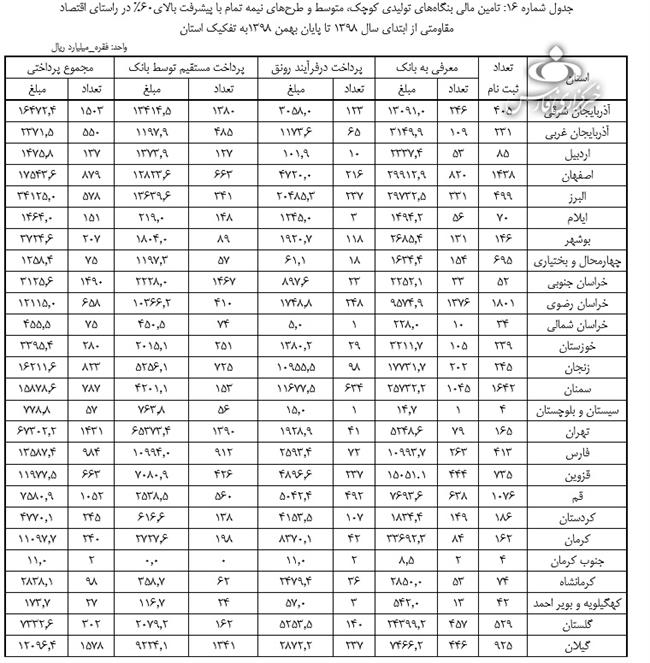 جدول شماره ۱۶: تامین مالی بنگاه‌های تولیدی کوچک، متوسط و طرح‌های نیمه تمام با پیشرفت بالای ۶۰٪ در راستای اقتصاد
مقاومتی از ابتدای سال ۱۳۹۸ تا پایان بهمن ۱۳۹۸به تفکیک استان
واحد: فقره_میلیارد ریال
استان تعداد ثبت نام معرفی به بانک پرداخت درفرآیند رونق پرداخت مستقیم توسط بانک مجموع پرداختی
تعداد مبلغ تعداد مبلغ تعداد مبلغ تعداد مبلغ
آذربایجان شرقی ۴۰۵ ۲۴۶ ۱۳۰۹۱,۰ ۱۲۳ ۳۰۵۸,۰ ۱۳۸۰ ۱۳۴۱۴,۵ ۱۵۰۳ ۱۶۴۷۲,۴
آذربایجان غربی ۲۳۱ ۱۰۹ ۳۱۴۹,۹ ۶۵ ۱۱۷۳,۶ ۴۸۵ ۱۱۹۷,۹ ۵۵۰ ۲۳۷۱,۵
اردبیل ۸۵ ۵۳ ۲۳۳۷,۴ ۱۰ ۱۰۱,۹ ۱۲۷ ۱۳۷۳,۹ ۱۳۷ ۱۴۷۵,۸
اصفهان ۱۴۳۸ ۸۲۰ ۲۹۹۱۲,۹ ۲۱۶ ۴۷۲۰,۰ ۶۶۳ ۱۲۸۲۳,۶ ۸۷۹ ۱۷۵۴۳,۶
البرز ۴۹۹ ۳۳۱ ۲۹۷۳۲,۵ ۲۳۷ ۲۰۴۸۵,۳ ۳۴۱ ۱۳۶۳۹,۶ ۵۷۸ ۳۴۱۲۵,۰
ایلام ۷۰ ۵۶ ۱۴۹۴,۲ ۳ ۱۲۴۵,۰ ۱۴۸ ۲۱۹,۰ ۱۵۱ ۱۴۶۴,۰
بوشهر ۱۴۶ ۱۳۱ ۲۶۸۵,۴ ۱۱۸ ۱۹۲۰,۷ ۸۹ ۱۸۰۴,۰ ۲۰۷ ۳۷۲۴,۶
چهارمحال و بختیاری ۶۹۵ ۱۵۴ ۱۶۳۴,۴ ۱۸ ۶۱,۱ ۵۷ ۱۱۹۷,۳ ۷۵ ۱۲۵۸,۴
خراسان جنوبی ۵۲ ۳۳ ۲۲۵۲,۱ ۲۳ ۸۹۷,۶ ۱۴۶۷ ۲۲۲۸,۰ ۱۴۹۰ ۳۱۲۵,۶
خراسان رضوی ۱۸۰۱ ۱۳۷۶ ۹۵۷۴,۹ ۲۴۸ ۱۷۴۸,۸ ۴۱۰ ۱۰۳۶۶,۲ ۶۵۸ ۱۲۱۱۵,۰
خراسان شمالی ۳۴ ۱۰ ۲۲۸,۰ ۱ ۵,۰ ۷۴ ۴۵۰,۵ ۷۵ ۴۵۵,۵
خوزستان ۲۳۹ ۱۰۵ ۳۲۱۱,۷ ۲۹ ۱۳۸۰,۲ ۲۵۱ ۲۰۱۵,۱ ۲۸۰ ۳۳۹۵,۴
زنجان ۲۴۵ ۲۰۲ ۱۷۷۳۱,۷ ۹۸ ۱۰۹۵۵,۵ ۷۲۵ ۵۲۵۶,۱ ۸۲۳ ۱۶۲۱۱,۶
سمنان ۱۶۴۲ ۱۰۴۵ ۲۵۷۳۲,۲ ۶۳۴ ۱۱۶۷۷,۵ ۱۵۳ ۴۲۰۱,۱ ۷۸۷ ۱۵۸۷۸,۶
سیستان و بلوچستان ۴ ۱ ۱۴,۷ ۱ ۱۵,۰ ۵۶ ۷۶۳,۸ ۵۷ ۷۷۸,۸
تهران ۱۶۵ ۷۹ ۵۲۴۸,۶ ۴۱ ۱۹۲۸,۹ ۱۳۹۰ ۶۵۳۷۳,۴ ۱۴۳۱ ۶۷۳۰۲,۲
فارس ۴۱۳ ۲۶۳ ۱۰۹۹۳,۷ ۷۲ ۲۵۹۳,۴ ۹۱۲ ۱۰۹۹۴,۰ ۹۸۴ ۱۳۵۸۷,۴
قزوین ۷۳۵ ۴۴۴ ۱۵۰۵۱.۱ ۲۳۷ ۴۸۹۶,۶ ۴۲۶ ۷۰۸۰,۹ ۶۶۳ ۱۱۹۷۷,۵
قم ۱۰۷۶ ۶۳۸ ۷۶۹۳,۶ ۴۹۲ ۵۰۴۲,۴ ۵۶۰ ۲۵۳۸,۵ ۱۰۵۲ ۷۵۸۰,۹
کردستان ۱۸۶ ۱۴۹ ۱۸۳۴,۴ ۱۰۷ ۴۱۵۳,۵ ۱۳۸ ۶۱۶,۶ ۲۴۵ ۴۷۷۰,۱
کرمان ۱۶۲ ۸۴ ۳۳۶۹۲,۳ ۴۲ ۸۳۷۰,۱ ۱۹۸ ۲۷۲۷,۶ ۲۴۰ ۱۱۰۹۷,۷
جنوب کرمان ۴ ۲ ۸,۵ ۲ ۱۱,۰ ۰ ۰,۰ ۲ ۱۱,۰
کرمانشاه ۷۴ ۵۳ ۲۸۵۰,۰ ۳۶ ۲۴۷۹,۴ ۶۲ ۳۵۸,۷ ۹۸ ۲۸۳۸,۱
کهگیلویه و بویر احمد ۴۲ ۱۳ ۵۴۲,۰ ۳ ۵۷,۰ ۲۴ ۱۱۶,۷ ۲۷ ۱۷۳,۷
گلستان ۵۲۹ ۴۵۷ ۲۴۳۹۹,۲ ۱۴۰ ۵۲۵۳,۵ ۱۶۲ ۲۰۷۹,۲ ۳۰۲ ۷۳۳۲,۶
گیلان ۹۲۵ ۴۴۶ ۷۴۶۶,۲ ۲۳۷ ۲۸۷۲,۲ ۱۳۴۱ ۹۲۲۴,۱ ۱۵۷۸ ۱۲۰۹۶,۴
خبرگزاری فارس